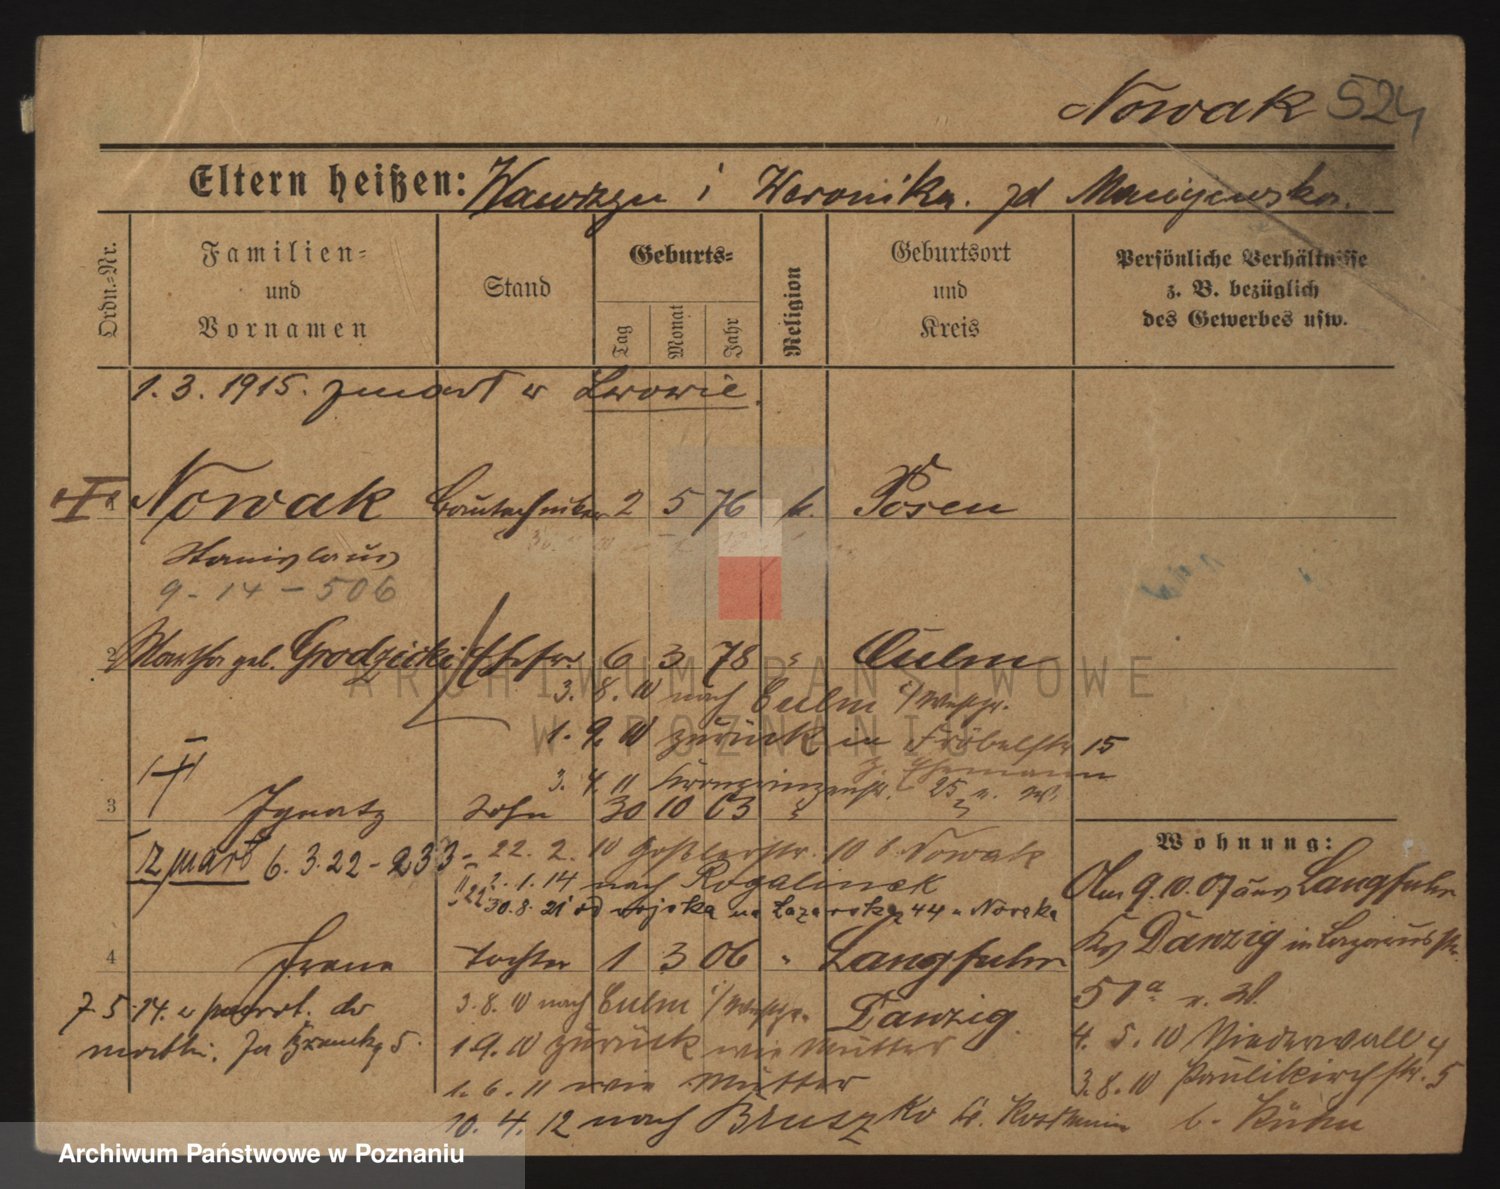 Nowak 524
Eltern heißen: Wawrzyn i Weronika. zd Maciejewska.
Ordn.-Nr.
Familien- und Vornamen
Stand
Geburts-
Tag
Monat
Jahr
Religion
Geburtsort und Kreis
Persönliche Verhältnisse z. B. bezüglich des Gewerbes usw.
1. 3. 1915. zmarł w Lwowie.
Nowak Bautechniker 2 5 76 k. Posen
Stanislaus
9-14-506
2 Martha geb. Grodzicki Ehefr. 6 3 78 " Culm
3. 8. 10 nach Culm i/Westpr.
1. 9. 10 zurück in Fröbelstr 15
z. Ehemann
3. 4. 11 Kronprinzenstr. 25 n. W.
3 Ignatz Sohn 30 10 03 "
Wohnung:
zmarł 6. 3. 22 - 233 - 22. 2. 10 Goßlerstr. 10 b. Nowak
2. 1. 14 nach Rogalinek
30. 8. 21 od wojska na Łazarska 44 Nowaka
4 Irene Tochter 1 3 06 " Langfuhr
Danzig.
7 5. 14. z powrot. do matki.
3. 8. 10 nach Culm i/Westpr.
1. 9. 10 zurück wie Mutter
1. 6. 11 wie Mutter
10. 4. 12 nach Bruszko
9. 10. 07 aus Langfuhr
Kr Danzig in Lazarusstr.
51a n. W.
4. 5. 10 Niederwall 4
3. 8. 10 Paulikirchstr. 5
b. Kühn
ARCHIWUM PAŃSTWOWE
W POZNANIU
Archiwum Państwowe w Poznaniu